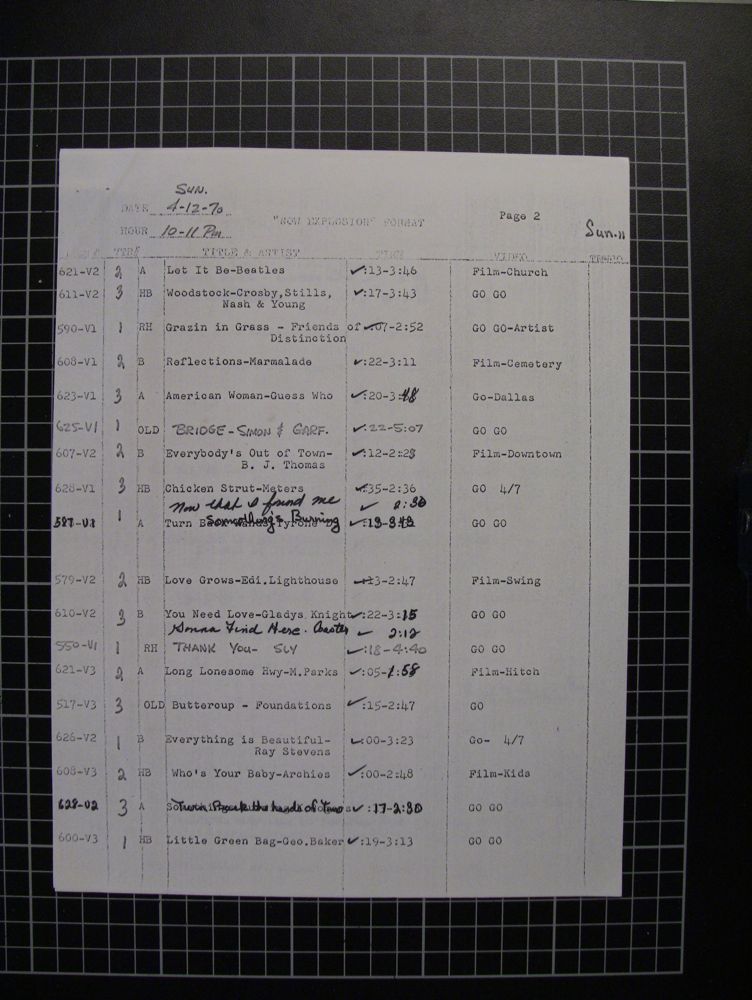 SUN.
DATE 4-12-70
"NOW EXPLOSION" FORMAT Page 2
HOUR 10-11 PM Sun. 11
TITLE & ARTIST TIME VIDEO
621-V2 2 A Let It Be-Beatles ✓:13-3:46 Film-Church
611-V2 3 HB Woodstock-Crosby,Stills, ✓:17-3:43 GO GO
Nash & Young
590-V1 1 RH Grazin in Grass - Friends of ✓:07-2:52 GO GO-Artist
Distinction
608-V1 2 B Reflections-Marmalade ✓:22-3:11 Film-Cemetery
623-V1 3 A American Woman-Guess Who ✓:20-3:48 Go-Dallas
625-V1 1 OLD BRIDGE-SIMON & GARF. ✓:22-5:07 GO GO
607-V2 2 B Everybody's Out of Town- ✓:12-2:28 Film-Downtown
B. J. Thomas
628-V1 3 HB Chicken Strut-Meters ✓:35-2:36 GO 4/7
Now that I found me ✓
1 A Turn Something's Burning ✓ GO GO
579-V2 2 HB Love Grows-Edi.Lighthouse ✓:13-2:47 Film-Swing
610-V2 3 B You Need Love-Gladys Knight ✓:22-3:15 GO GO
Gonna Find Her. Coasters ✓ 2:12
550-V1 1 RH THANK YOU- SLY ✓:18-4:40 GO GO
621-V3 2 A Long Lonesome Hwy-M.Parks ✓:05-1:58 Film-Hitch
517-V3 3 OLD Buttercup - Foundations ✓:15-2:47 GO
626-V2 1 B Everything is Beautiful- ✓:00-3:23 Go- 4/7
Ray Stevens
608-V3 2 HB Who's Your Baby-Archies ✓:00-2:48 Film-Kids
628-V2 3 A Turn Back the hands of Time ✓:17-2:30 GO GO
600-V3 1 HB Little Green Bag-Geo.Baker ✓:19-3:13 GO GO